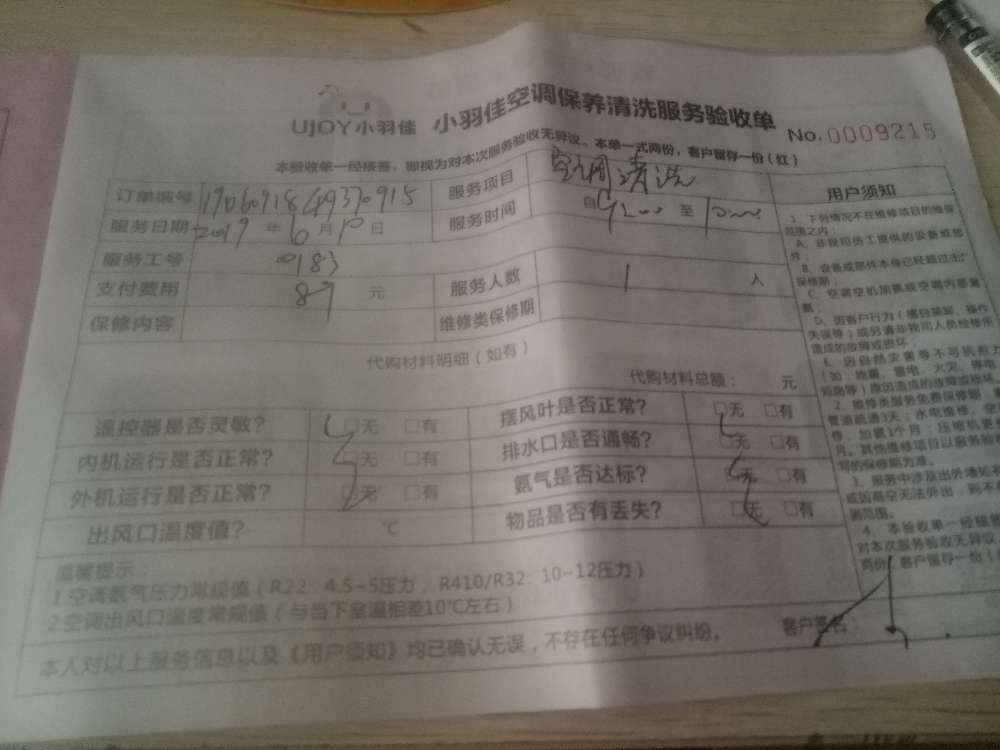 UJOY小羽佳 小羽佳空调保养清洗服务验收单 No. 0009215
本验收单一经核签，即视为对本次服务验收无异议。本单一式两份，客户留存一份（红）
订单编号 服务项目 空调清洗
服务日期 2019 年 6 月 10 日 服务时间 自 9:00 至
服务工号 0183
支付费用 87 元 服务人数 1 人
保修内容 维修类保修期
代购材料明细（如有）
代购材料总额： 元
遥控器是否灵敏? 无 有 摆风叶是否正常? 无 有
内机运行是否正常? 无 有 排水口是否通畅? 无 有
外机运行是否正常? 无 有 氨气是否达标? 无 有
出风口温度值? ℃ 物品是否有丢失? 无 有
温馨提示：
1.空调氨气压力常规值（R22：4.5~5压力，R410/R32：10~12压力）
2.空调出风口温度常规值（与当下室温相差10℃左右）
本人对以上服务信息以及《用户须知》均已确认无误，不存在任何争议纠纷。 客户签名：
用户须知
1、下列情况不在维修项目的维保
范围之内：
A、非我司员工提供的设备或部
件；
B、设备或部件本身已经超过出厂
保修期；
D、因客户行为
造成的故障或损坏；
E、因自然灾害等不可抗力
（如：地震、雷电、火灾、停电、
原因造成的故障或损坏。
2、维修类服务免费保修期：
管道疏通3天；水电维修，空
修、加氨1个月；压缩机更
月。其他维修项目以服务验
写的保修期为准。
3、服务中涉及出外墙
或因高空无法外出，则不
务范围。
4、本验收单一经核签
对本次服务验收无异议
两份，客户留存一份（